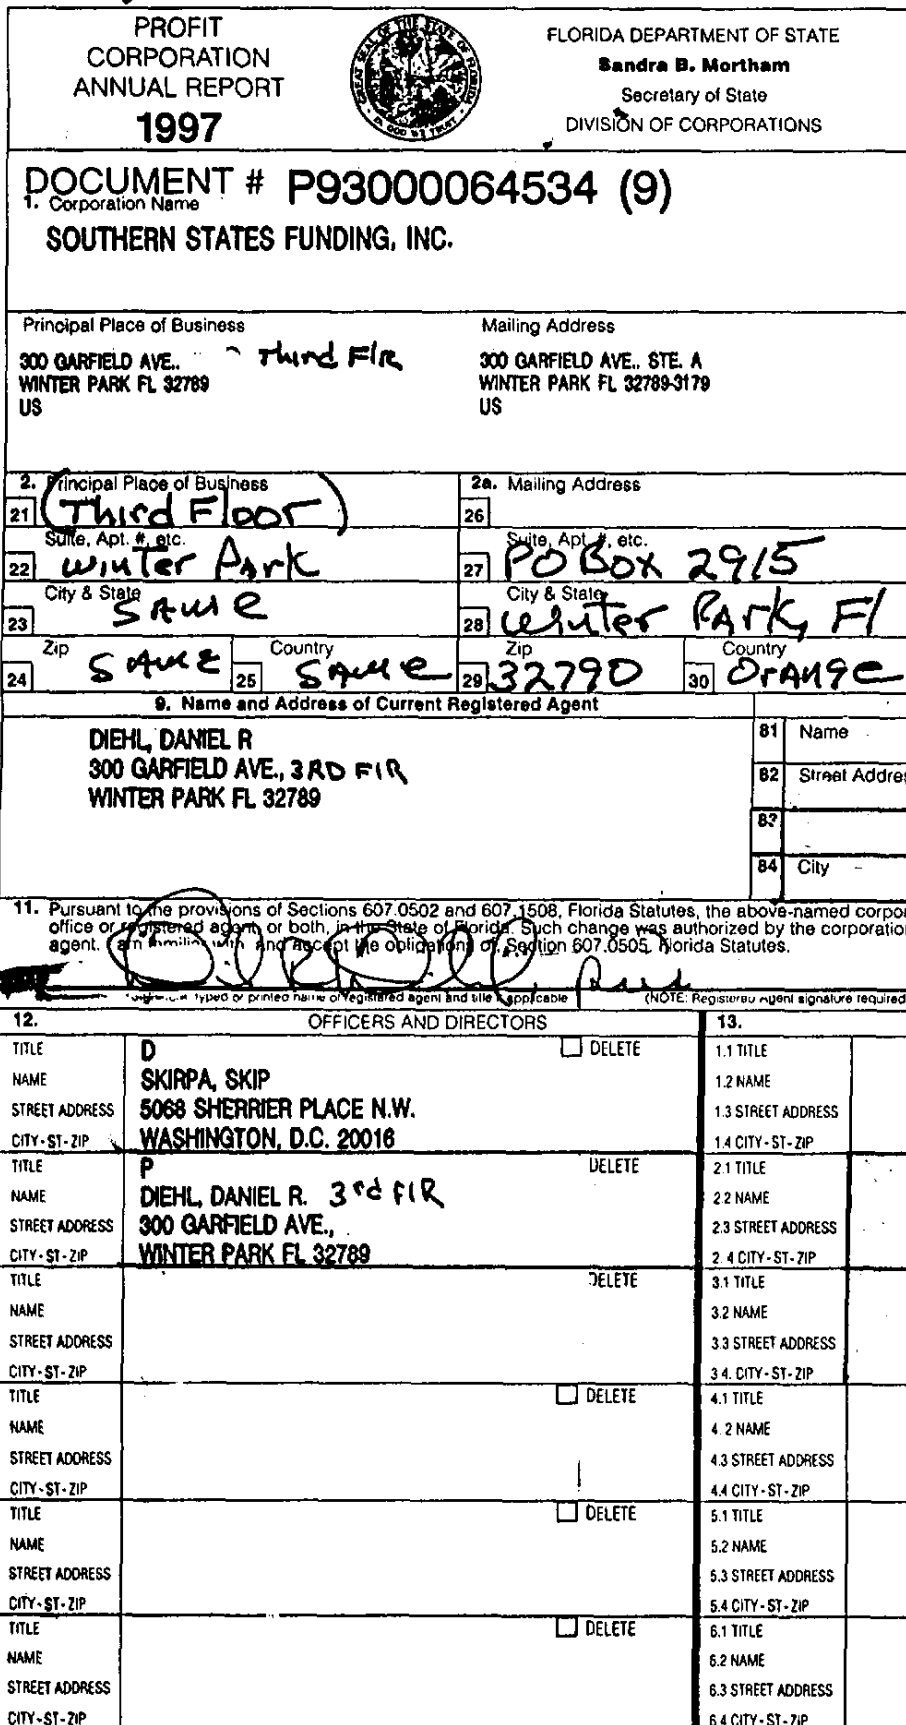 PROFIT
CORPORATION
ANNUAL REPORT
1997
GREAT SEAL OF THE STATE OF FLORIDA
IN GOD WE TRUST
FLORIDA DEPARTMENT OF STATE
Sandra B. Mortham
Secretary of State
DIVISION OF CORPORATIONS
DOCUMENT # P93000064534 (9)
1. Corporation Name
SOUTHERN STATES FUNDING, INC.
Principal Place of Business
300 GARFIELD AVE.. Third Flr
WINTER PARK FL 32789
US
Mailing Address
300 GARFIELD AVE.. STE. A
WINTER PARK FL 32789-3179
US
2. Principal Place of Business
21 (Third Floor)
Suite, Apt. #, etc.
22 Winter Park
City & State
23 Same
Zip
24 Same
Country
25 Same
2a. Mailing Address
26
Suite, Apt. #, etc.
27 PO Box 2915
City & State
28 Winter Park, Fl
Zip
29 32790
Country
30 Orange
9. Name and Address of Current Registered Agent
DIEHL, DANIEL R
300 GARFIELD AVE., 3RD FlR
WINTER PARK FL 32789
81 Name
82 Street Addre
83
84 City
11. Pursuant to the provisions of Sections 607.0502 and 607.1508, Florida Statutes, the above-named corpor
office or registered agent, or both, in the State of Florida. Such change was authorized by the corporation
agent. I am familiar with, and accept the obligations of, Section 607.0505, Florida Statutes.
typed or printed name of registered agent and title if applicable
(NOTE: Registered Agent signature required
12. OFFICERS AND DIRECTORS
13.
TITLE D DELETE
NAME SKIRPA, SKIP
STREET ADDRESS 5068 SHERRIER PLACE N.W.
CITY-ST-ZIP WASHINGTON, D.C. 20016
1.1 TITLE
1.2 NAME
1.3 STREET ADDRESS
1.4 CITY-ST-ZIP
TITLE P DELETE
NAME DIEHL, DANIEL R. 3rd FlR
STREET ADDRESS 300 GARFIELD AVE.,
CITY-ST-ZIP WINTER PARK FL 32789
2.1 TITLE
2.2 NAME
2.3 STREET ADDRESS
2.4 CITY-ST-ZIP
TITLE DELETE
NAME
STREET ADDRESS
CITY-ST-ZIP
3.1 TITLE
3.2 NAME
3.3 STREET ADDRESS
3.4. CITY-ST-ZIP
TITLE DELETE
NAME
STREET ADDRESS
CITY-ST-ZIP
4.1 TITLE
4.2 NAME
4.3 STREET ADDRESS
4.4 CITY-ST-ZIP
TITLE DELETE
NAME
STREET ADDRESS
CITY-ST-ZIP
5.1 TITLE
5.2 NAME
5.3 STREET ADDRESS
5.4 CITY-ST-ZIP
TITLE DELETE
NAME
STREET ADDRESS
CITY-ST-ZIP
6.1 TITLE
6.2 NAME
6.3 STREET ADDRESS
6.4 CITY-ST-ZIP